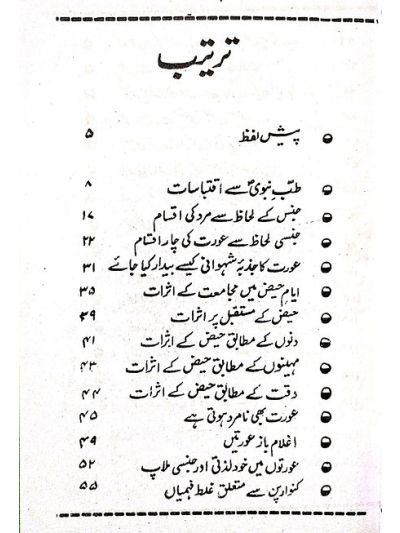 ترتیب
پیش لفظ ۵
طبِّ نبویؐ سے اقتباسات ۸
جنس کے لحاظ سے مرد کی اقسام ۱۷
جنسی لحاظ سے عورت کی چار اقسام ۲۲
عورت کا جذبۂ شہوانی کیسے بیدار کیا جائے ۳۱
ایامِ حیض میں مجامعت کے اثرات ۳۵
حیض کے مستقبل پر اثرات ۳۹
دنوں کے مطابق حیض کے اثرات ۴۱
مہینوں کے مطابق حیض کے اثرات ۴۳
وقت کے مطابق حیض کے اثرات ۴۴
عورت بھی نامرد ہوتی ہے ۴۵
اغلام باز عورتیں ۴۹
عورتوں میں خود لذتی اور جنسی ملاپ ۵۲
کنوارپن سے متعلق غلط فہمیاں ۵۵